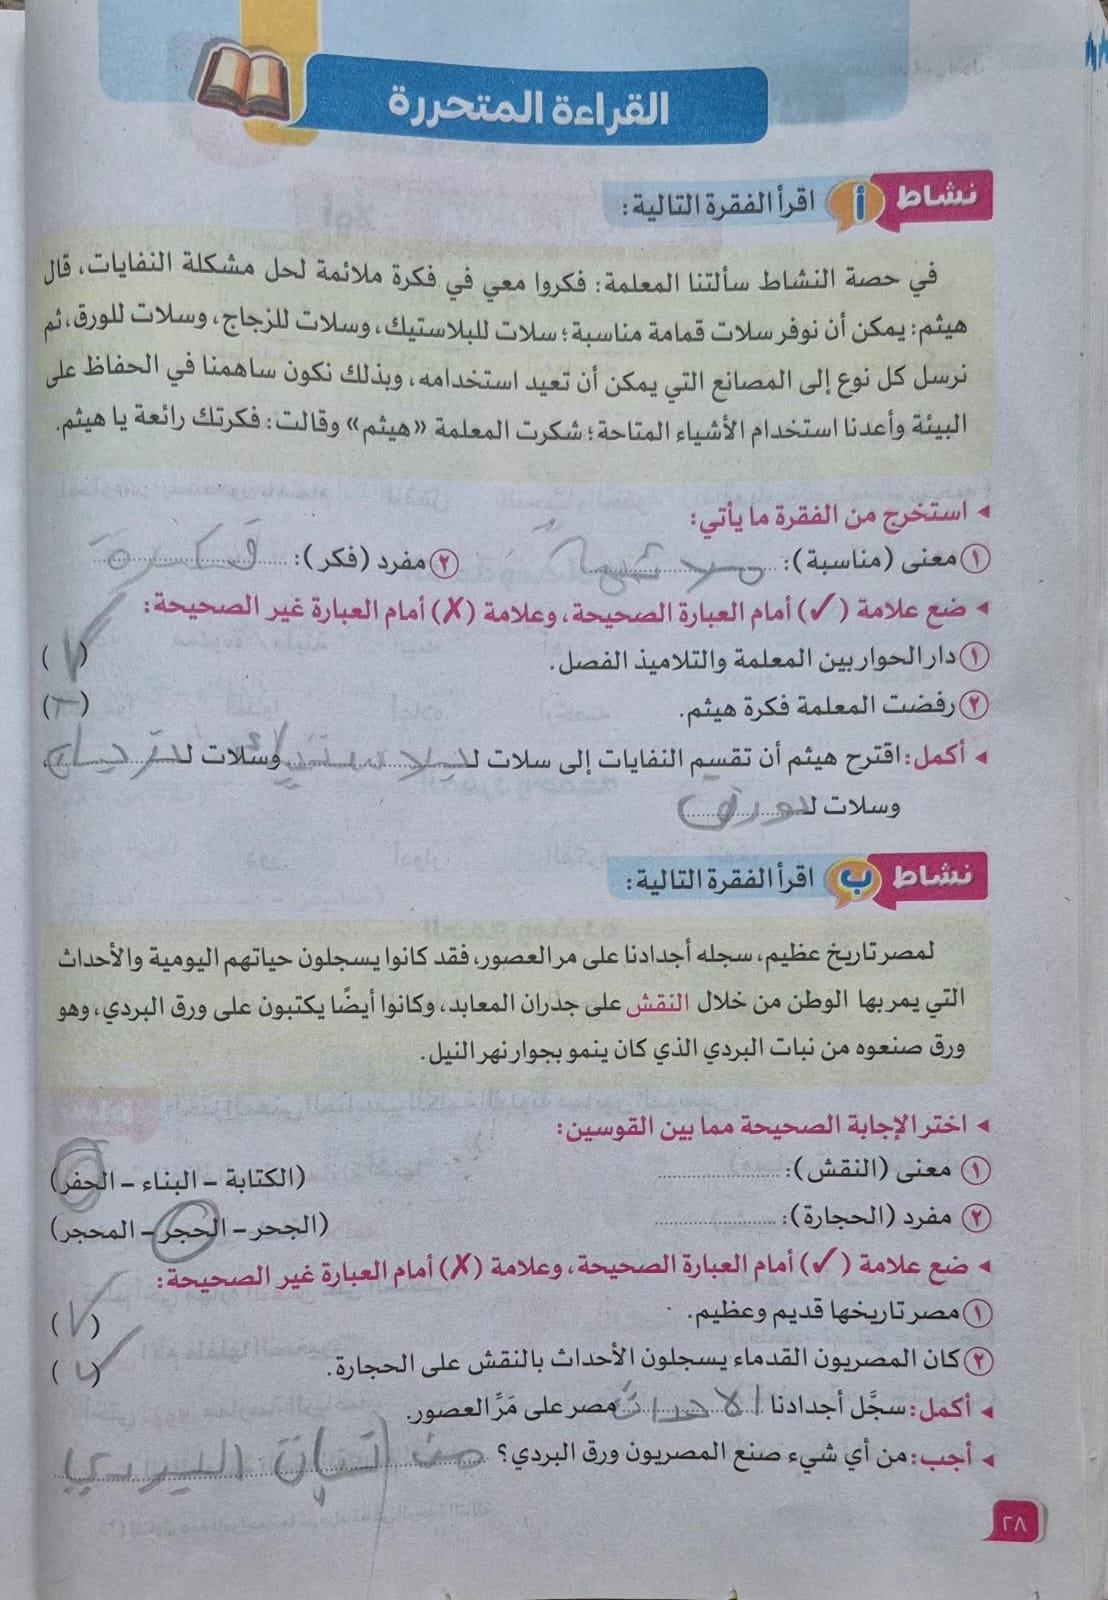 القراءة المتحررة
نشاط أ اقرأ الفقرة التالية:
في حصة النشاط سألتنا المعلمة: فكروا معي في فكرة ملائمة لحل مشكلة النفايات، قال
هيثم: يمكن أن نوفر سلات قمامة مناسبة؛ سلات للبلاستيك، وسلات للزجاج، وسلات للورق، ثم
نرسل كل نوع إلى المصانع التي يمكن أن تعيد استخدامه، وبذلك نكون ساهمنا في الحفاظ على
البيئة وأعدنا استخدام الأشياء المتاحة؛ شكرت المعلمة «هيثم» وقالت: فكرتك رائعة يا هيثم.
استخرج من الفقرة ما يأتي:
١ معنى (مناسبة): ٢ مفرد (فكر): فكرة
ضع علامة (✓) أمام العبارة الصحيحة، وعلامة (✗) أمام العبارة غير الصحيحة:
١ دار الحوار بين المعلمة والتلاميذ الفصل. (✓)
٢ رفضت المعلمة فكرة هيثم. ( )
أكمل: اقترح هيثم أن تقسم النفايات إلى سلات لـ وسلات لـ ،
وسلات لـ ورق
نشاط ب اقرأ الفقرة التالية:
لمصر تاريخ عظيم، سجله أجدادنا على مر العصور، فقد كانوا يسجلون حياتهم اليومية والأحداث
التي يمر بها الوطن من خلال النقش على جدران المعابد، وكانوا أيضًا يكتبون على ورق البردي، وهو
ورق صنعوه من نبات البردي الذي كان ينمو بجوار نهر النيل.
اختر الإجابة الصحيحة مما بين القوسين:
١ معنى (النقش): (الكتابة – البناء – الحفر)
٢ مفرد (الحجارة): (الجحر – الحجر – المحجر)
ضع علامة (✓) أمام العبارة الصحيحة، وعلامة (✗) أمام العبارة غير الصحيحة:
١ مصر تاريخها قديم وعظيم. (✓)
٢ كان المصريون القدماء يسجلون الأحداث بالنقش على الحجارة. (✓)
أكمل: سجَّل أجدادنا الاحداث مصر على مَرِّ العصور.
أجب: من أي شيء صنع المصريون ورق البردي؟ من نبات البردي
٢٨